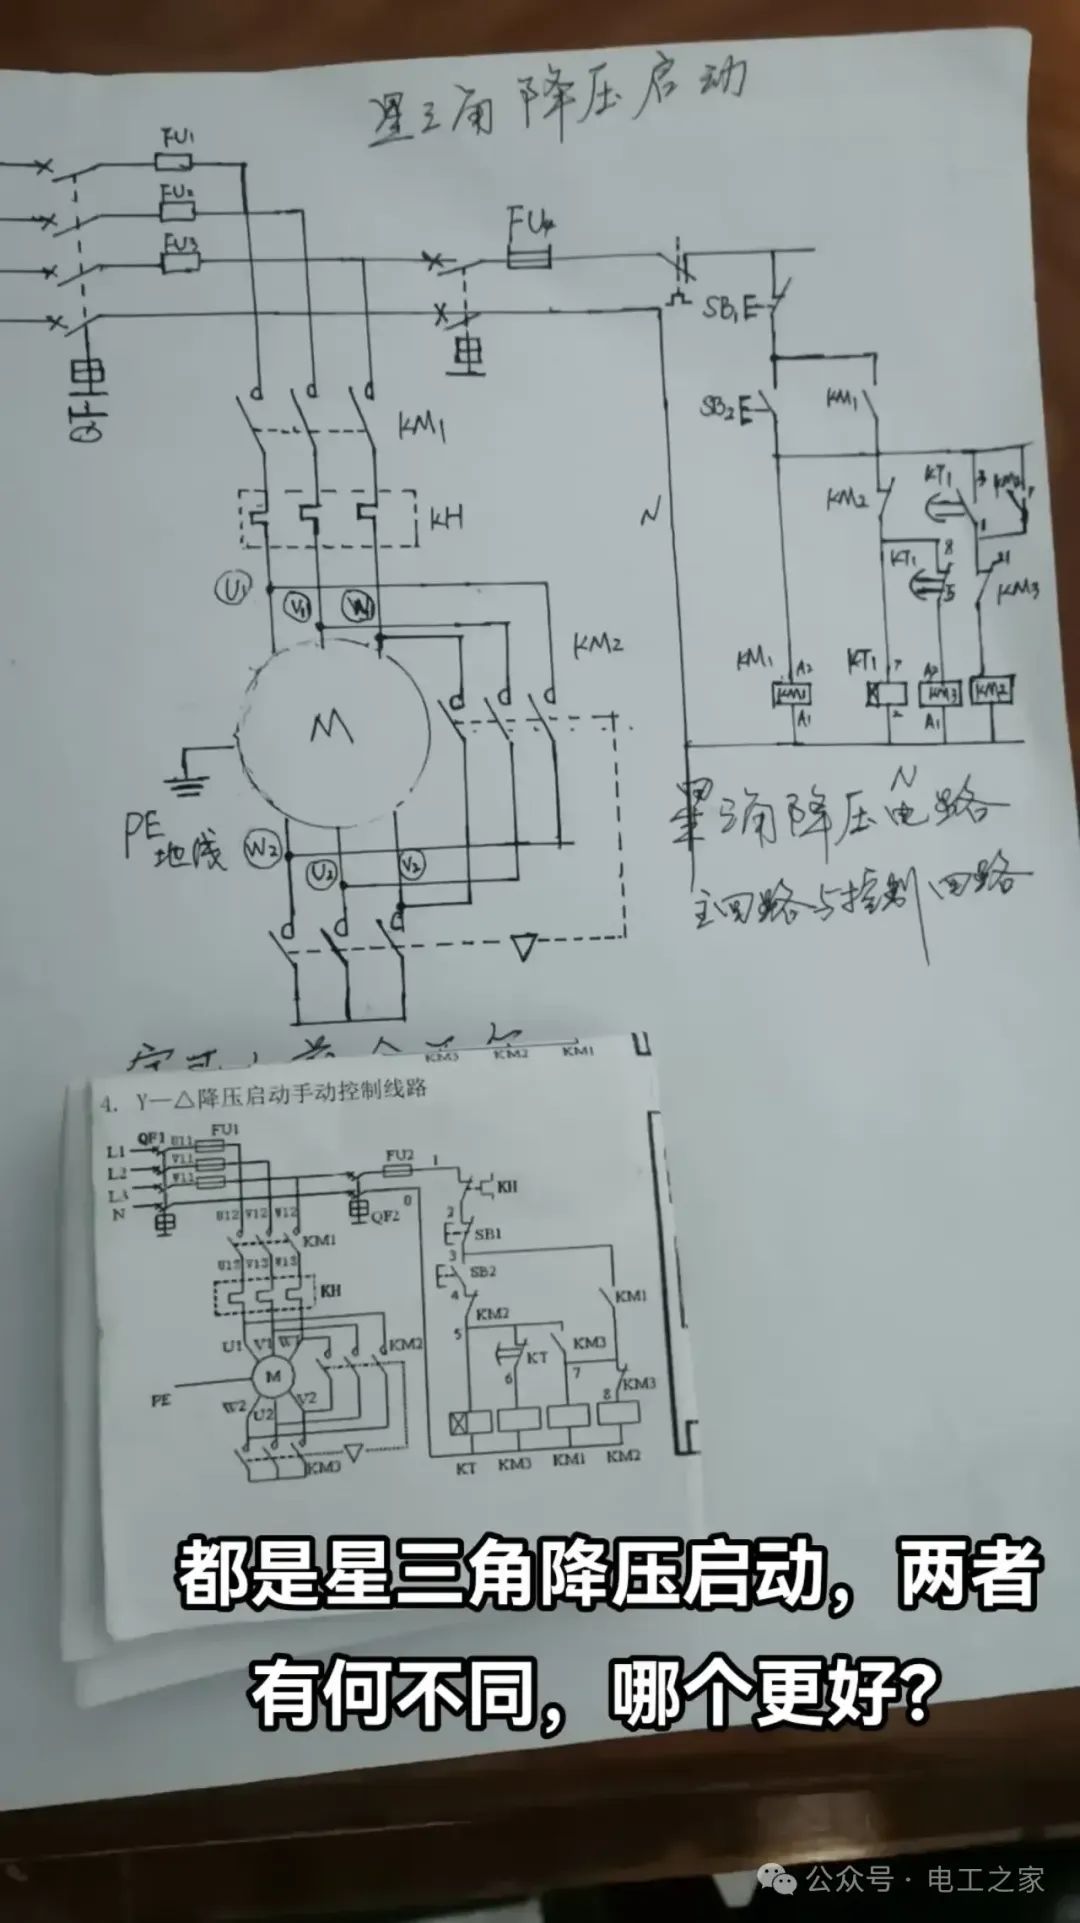 星三角降压启动
FU1
FU2
FU3
FU4
QF
SB1
SB2
KM1
KM1
KH
N
KM2
KT1
KM2
KT1
8
5
KM3
U1
V1
W1
KM2
M
PE
地线
W2
U2
V2
KM1
A2
KM1
A1
KT1
7
2
A2
KM3
A1
KM2
N
星三角降压电路
主回路与控制回路
KM3 KM2 KM1
4. Y—△降压启动手动控制线路
L1
L2
L3
N
QF1
U11
V11
W11
FU1
U12 V12 W12
KM1
U13 V13 W13
KH
U1 V1 W1
KM2
M
PE
W2
U2
V2
KM3
FU2
QF2
0
1
KH
2
SB1
3
SB2
4
KM2
5
KM1
KT
6
KM3
7
KM3
8
KT KM3 KM1 KM2
都是星三角降压启动，两者
有何不同，哪个更好？
公众号 · 电工之家